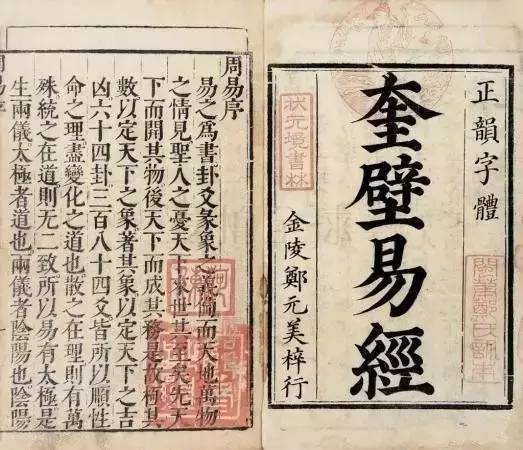 正韻字體
奎壁易經
狀元境書林
金陵鄭元美梓行
周易序
易之爲書卦爻彖象之義備而天地萬物
之情見聖人之憂天下來世其至矣先天
下而開其物後天下而成其務是故極其
數以定天下之象著其象以定天下之吉
凶六十四卦三百八十四爻皆所以順性
命之理盡變化之道也散之在理則有萬
殊統之在道則无二致所以易有太極是
生兩儀太極者道也兩儀者陰陽也陰陽